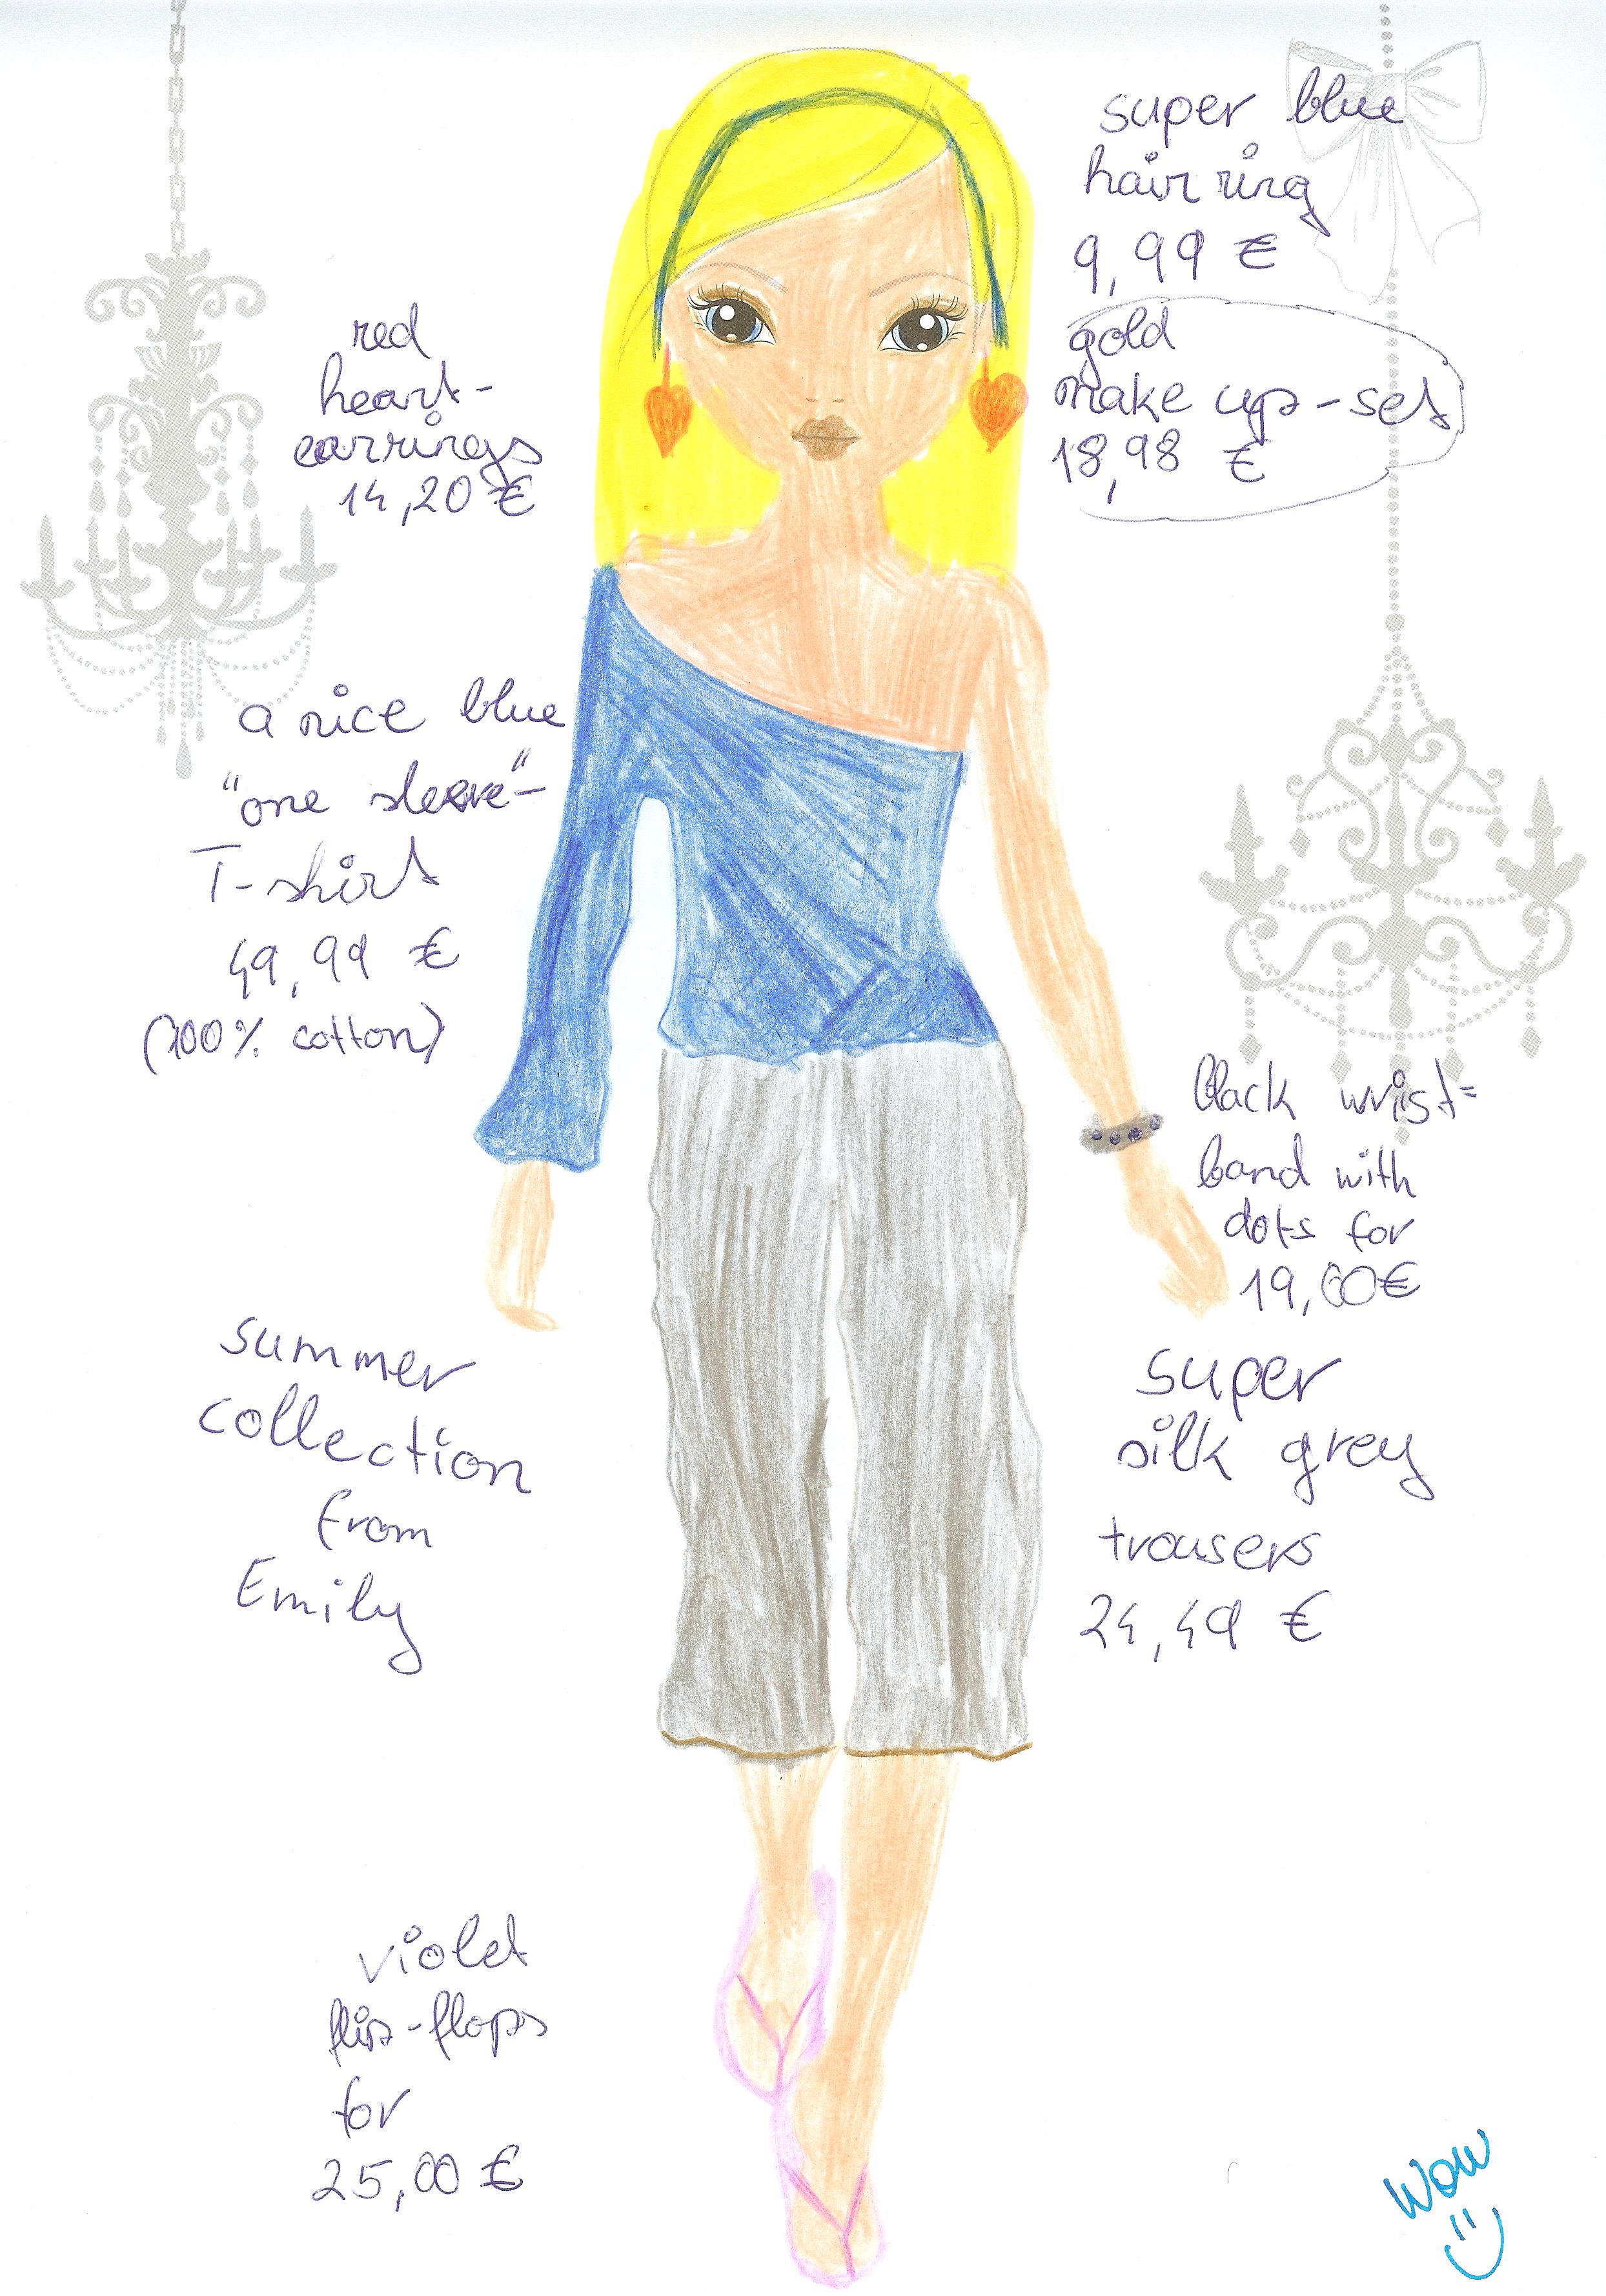 super blue
hair ring
9,99 €
gold
make up-set
18,98 €
red
heart-
earrings
14,20 €
a nice blue
"one sleeve"-
T-shirt
49,99 €
(100% cotton)
black wrist=
band with
dots for
19,60€
summer
collection
from
Emily
super
silk grey
trousers
24,49 €
violet
flip-flops
for
25,00 €
Wow